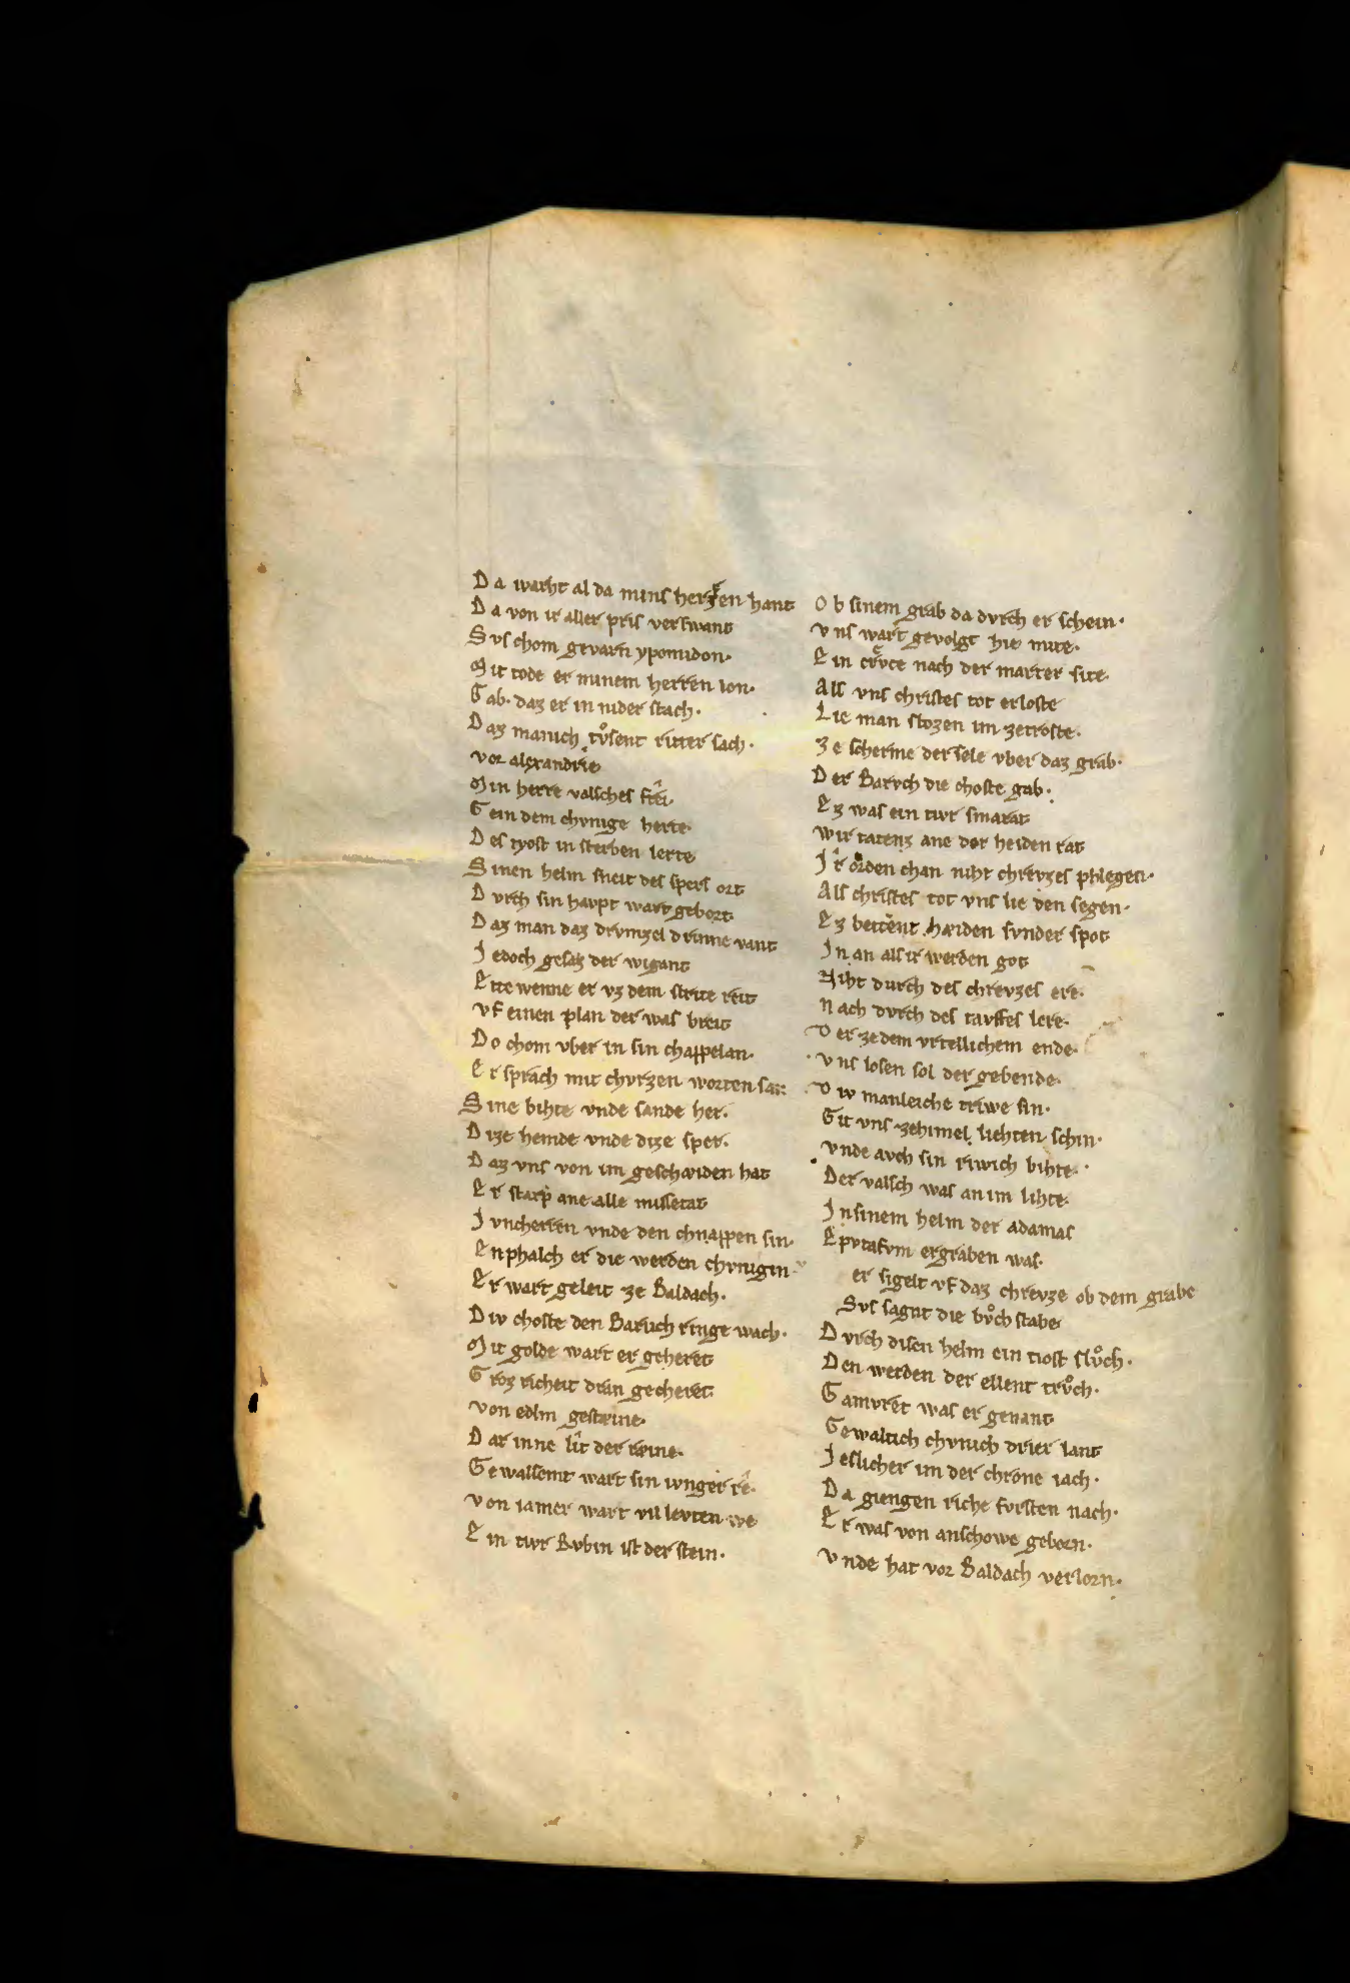 Da warht al da mins herren hant
Da von ir aller pris verswant
Svs chom gevarn ypomidon·
Mit tode er minem herren lon·
Gab· daz er in nider stach·
Daz manich tvͦsent ritter sach·
vor alexandrie
Min herre valsches frêi·
Gein dem chvnige herte·
Des tyost in sterben lerte
Sinen helm sneit des spers ort
Dvrch sin havpt wart gebort·
Daz man daz drvmzel drinne vant
Jedoch gesaz der wigant
Ettewenne er vz dem strite reit
vf einen plan der was breit
Do chom vber in sin chappelan·
Er sprach mit chvrzen worten san
Sine bihte vnde sande her·
Dize hemde vnde dize sper·
Daz vns von im geschæiden hat
Er starp ane alle missetat
Jvncherren vnde den chnappen sin·
Enphalch er die werden chvnigin·
Er wart geleit ze Baldach·
Div choste den Baruch ringe wach·
Mit golde wart er geheret
Groz richeit dran gecheret
von edlm gestæine·
Dar inne lît der ræine·
Gewalsemt wart sin ivnger rê·
von iamer wart vil levten we
Ein tivr Rvbin ist der stein·
Ob sinem grab da dvrch er schein·
vns wart gevolgt hie mite·
Ein crvͤce nach der marter site·
Als vns christes tot erloste
Lie man stozen im zetroste·
ze scherme der sele vber daz grab·
Der Barvch die choste gab·
Ez was ein tivr smarat
wir tatenz ane der heiden rat
Jr orden chan niht chrevzes phlegen·
Als christes tot vns lie den segen·
Ez bettent hæiden svnder spot
Jn an als ir werden got
Niht durch des chrevzes ere·
Nach dvrch des tavffes lere·
Der zedem vrteillichem ende·
vns losen sol der gebende·
Div manleiche triwe sin·
Git vns zehimel liehten schin·
vnde avch sin riwich bihte·
Der valsch was an im lihte·
Jnsinem helm der adamas
Epytafvm ergraben was·
er sigelt vf daz chrevze ob dem grabe
Svs sagnt die bvͦchstabe
Dvrch disen helm ein tiost slvͦch·
Den werden der ellent trvͦch·
Gamvret was er genant
Gewaltich chvnich drier lant
Jeslicher im der chrone iach·
Da giengen riche fvrsten nach·
Er was von anschowe geborn·
vnde hat vor Baldach verlorn·